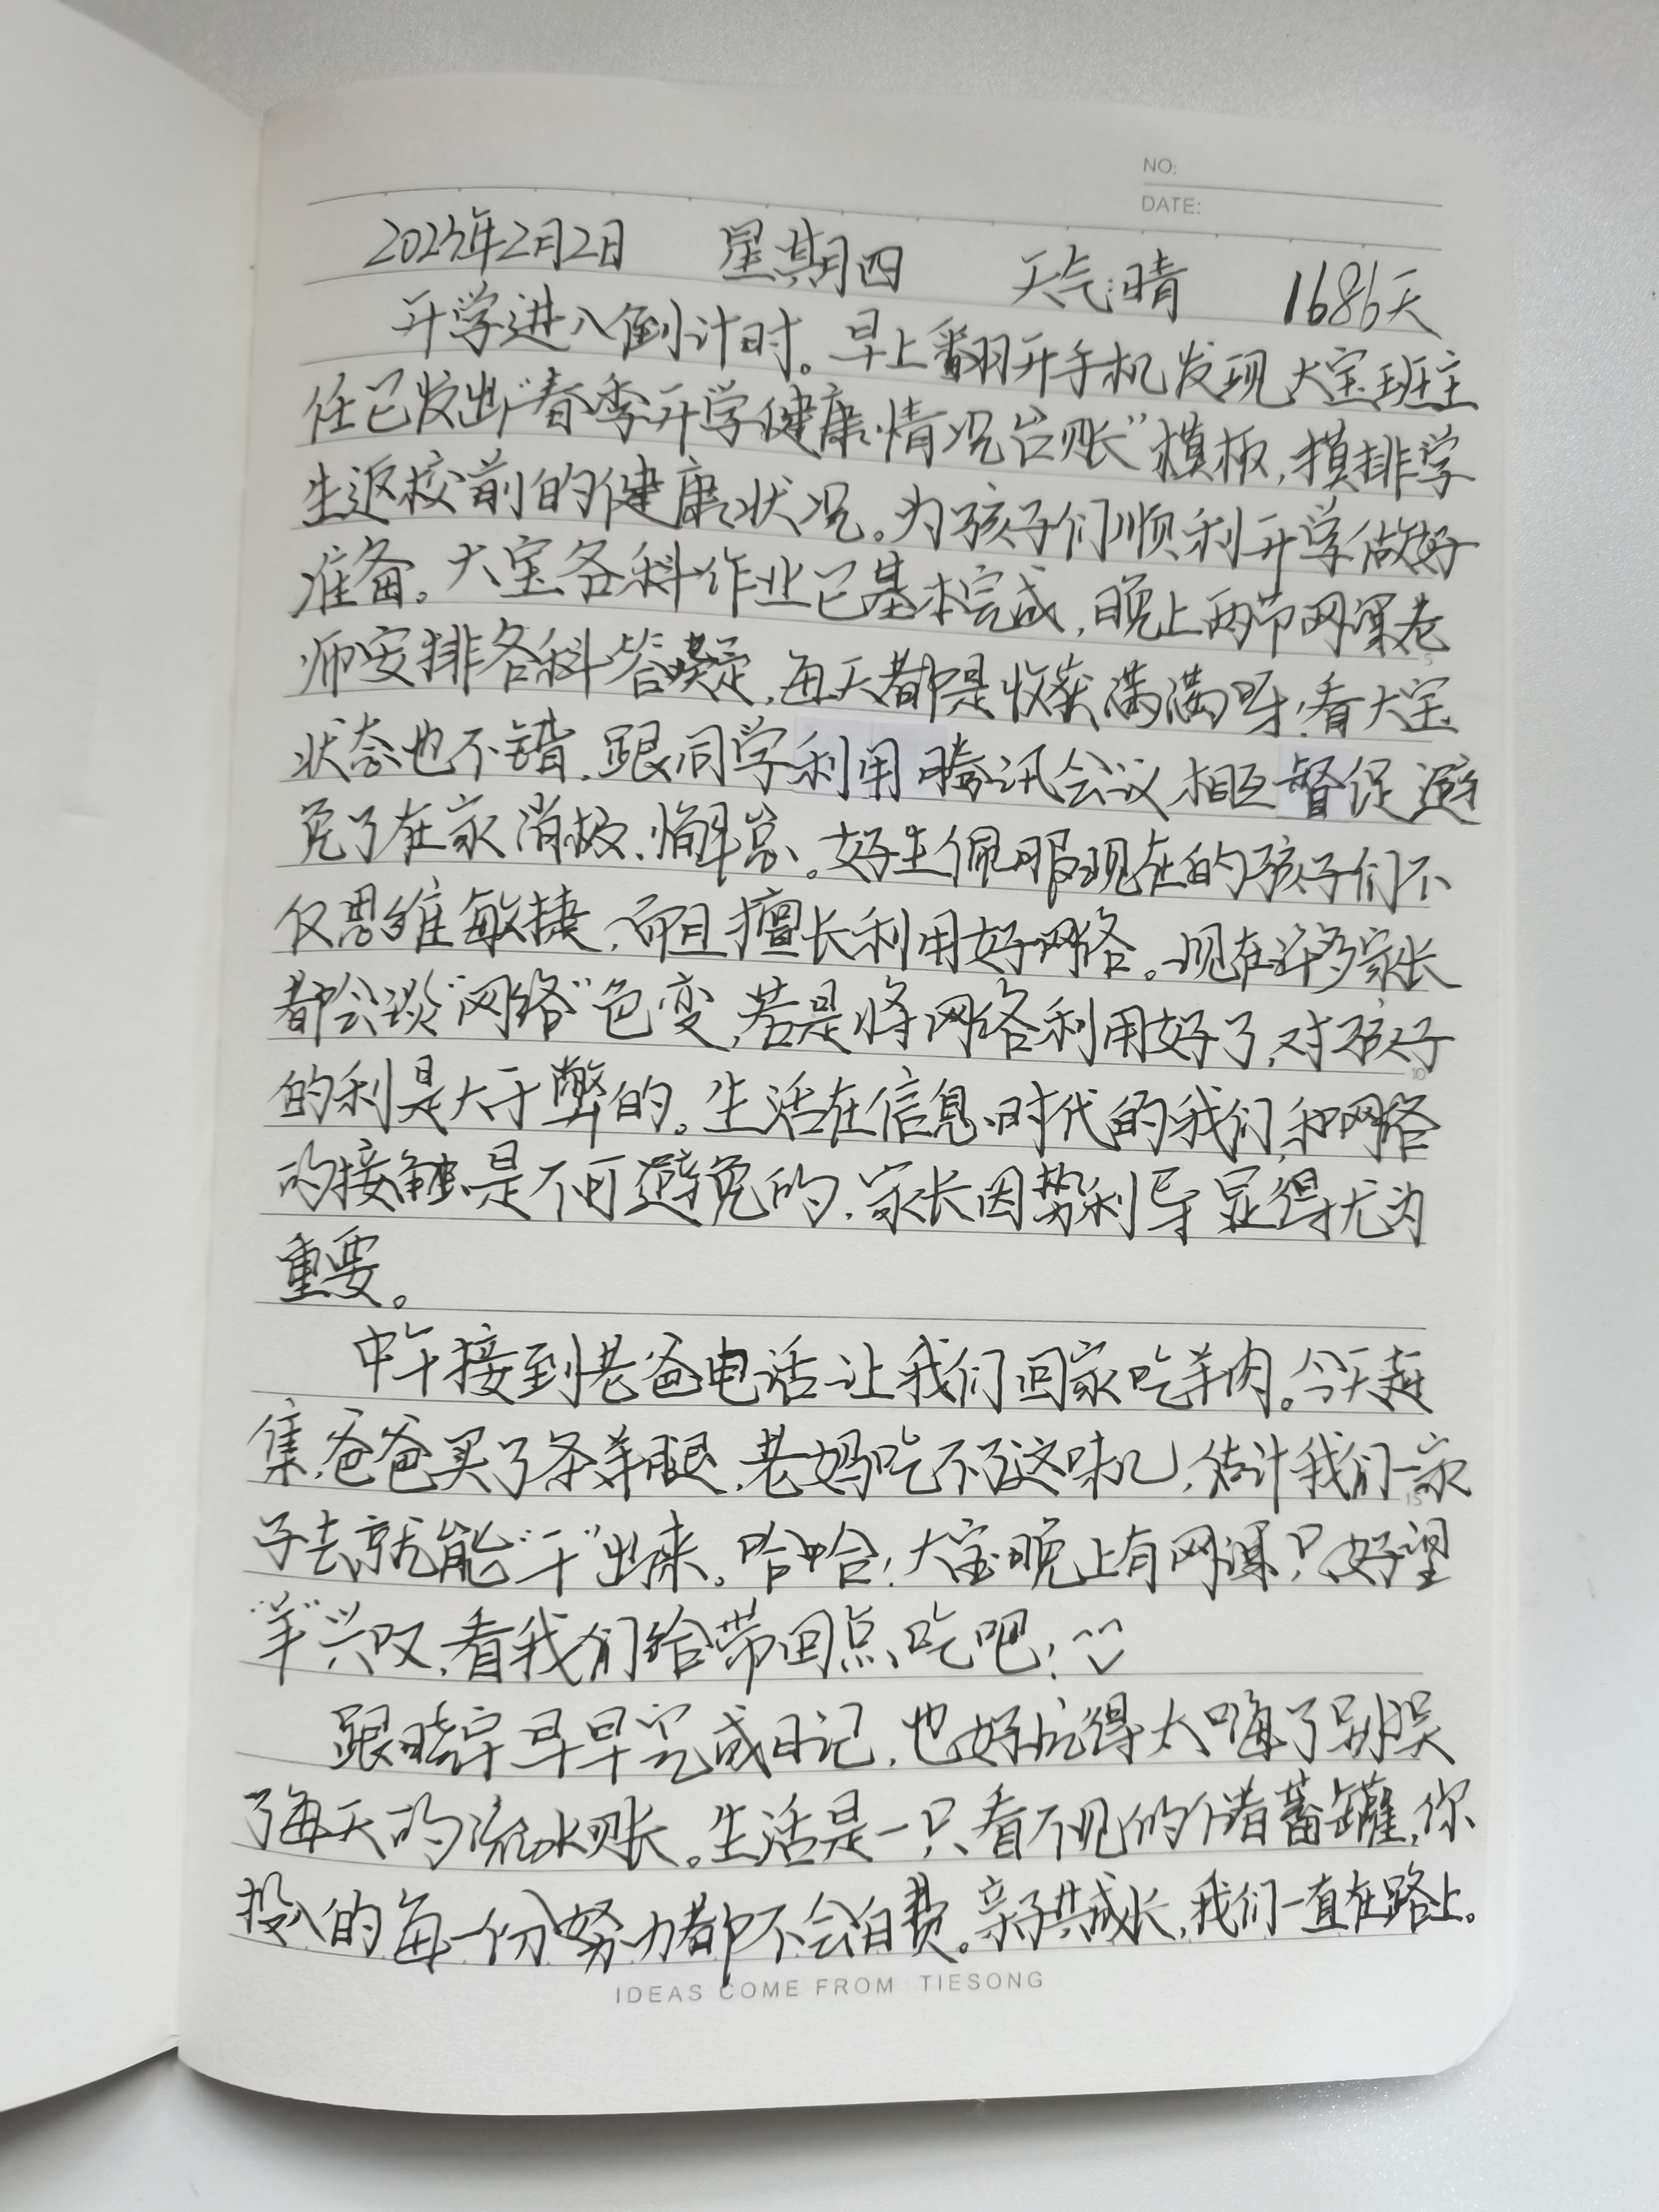 NO:
DATE:
2023年2月2日 星期四 天气:晴 1686天
开学进入倒计时。早上翻开手机发现大宝班主
任已发出“春季开学健康情况台账”模板,摸排学
生返校前的健康状况。为孩子们顺利开学做好
准备。大宝各科作业已基本完成,晚上两节网课老
师安排各科答疑,每天都是收获满满呀!看大宝
状态也不错,跟同学利用腾讯会议相互督促避
免了在家消极、懈怠、。好生佩服现在的孩子们不
仅思维敏捷,而且擅长利用好网络。现在许多家长
都会谈“网络”色变,若是将网络利用好了,对孩子
的利是大于弊的。生活在信息时代的我们,和网络
的接触是不可避免的,家长因势利导显得尤为
重要。
中午接到老爸电话让我们回家吃羊肉。今天赶
集,爸爸买了条羊腿,老妈吃不了这味儿,估计我们一家
子去就能“干”出来。哈哈!大宝晚上有网课,只好望
“羊”兴叹,看我们给带回点吃吧!
跟晓宇早早完成日记,也好玩得太嗨了别误
了每天的流水账。生活是一只看不见的储蓄罐,你
投入的每一份努力都不会白费。亲子共成长,我们一直在路上。
IDEAS COME FROM TIESONG